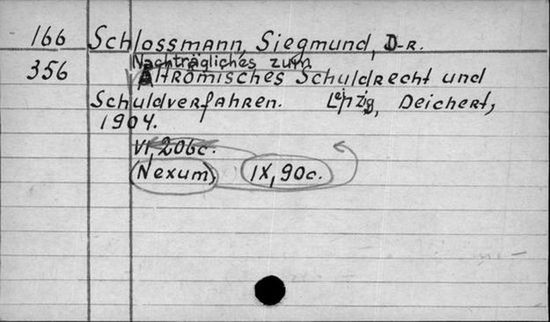 166 Schlossmann, Siegmund, D-r.
Nachträgliches zum
356 Altrömisches Schuldrecht und
Schuldverfahren. Leipzig, Deichert,
1904.
VI, 206c.
Nexum, IX, 90c.